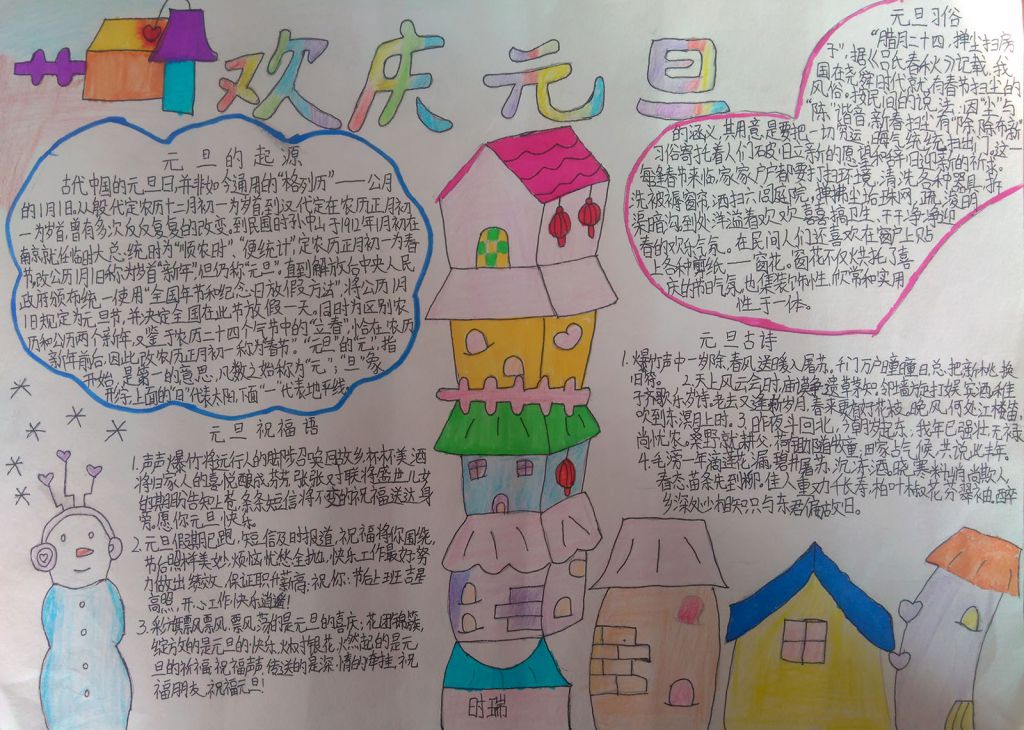 欢庆元旦
元旦的起源
古代中国的元旦日,并非如今通用的“格列历”——公月
的1月1日。从殷代定农历十二月初一为岁首,到汉代定在农历正月初
一为岁首,曾有多次反反复复的改变。到民国的孙中山于1912年1月初在
南京就任临时大总统时为“顺农时”、“便统计”定农历正月初一为春
节,改公历1月1日称为岁首“新年”,但仍称“元旦”。直到解放后中央人民
政府颁布统一使用“全国年节和纪念日放假方法”,将公历1月
1日规定为元旦节,并决定全国在此节放假一天。同时为区别农
历和公历两个新年,又鉴于农历二十四个气节中的“立春”,恰在农历
新年前后,因此改农历正月初一称为“春节”。“元旦”的“元”,指
开始,是第一的意思,凡数之始称为“元”;“旦”象
形字,上面的“日”代表太阳,下面“一”代表地平线。
元旦习俗
“腊月二十四,掸尘扫房
子”,据《吕氏春秋》记载,我
国在尧舜时代就有春节扫尘的
风俗。按民间的说法:因“尘”与
“陈”谐音,新春扫尘有“除陈布新”
的涵义,其用意是要把一切穷运、晦气统统扫出门。这一
习俗寄托着人们破旧立新的愿望和辞旧迎新的祈求。
每逢春节来临,家家户户都要打扫环境,清洗各种器具,拆
洗被褥窗帘,洒扫六闾庭院,掸拂尘垢蛛网,疏浚明
渠暗沟。到处洋溢着欢欢喜喜搞卫生、干干净净迎
春的欢乐气氛。在民间人们还喜欢在窗户上贴
上各种剪纸——窗花。窗花不仅烘托了喜
庆的节日气氛,也集装饰性、欣赏和实用
性于一体。
元旦古诗
1.爆竹声中一岁除,春风送暖入屠苏。千门万户曈曈日,总把新桃换
旧符。 2.天上风云会时,庙谟争遣草茅知。邻墙旋打娱宾酒,稚
子齐歌乐岁诗。老去又逢新岁月,春来更有好花枝。晚风何处江楼笛,
吹到东溟月上时。3.昨夜斗回北,今朝岁起东。我年已强壮,无禄
尚忧农。桑野就耕父,荷锄随牧童。田家占气候,共说此丰年。
4.屠苏,沉冻酒,晓寒料峭尚欺人,
春态苗条先到柳。佳人重劝千长寿,柏叶椒花芬翠袖,醉
乡深处少相知,只与东君偏故旧。
元旦祝福语
1.声声爆竹将远行人的脚步召唤回故乡,杯杯美酒
将归家人的喜悦酿成芬芳,张张对联将盛世儿女
的期盼告知上苍,条条短信将不变的祝福送达身
旁,愿你元旦快乐。
2.元旦假期已跑,短信及时报道,祝福将你围绕,
节后照样美妙,烦恼忧愁全抛,快乐工作最好,努
力做出绩效,保证职升薪高;祝你:节后上班吉星
高照,开心工作快乐逍遥!
3.彩旗飘飘,飘荡的是元旦的喜庆;花团锦簇,
绽放的是元旦的快乐;火树银花,燃起的是元
旦的祈福;祝福声声,传送的是深情的牵挂,祝
福朋友,祝福元旦!
时瑞